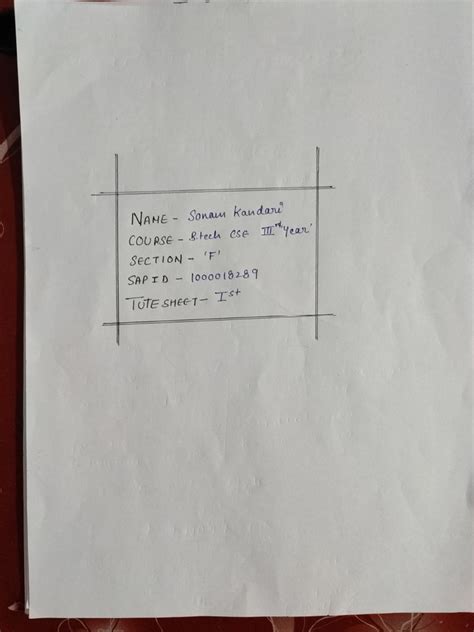 NAME - Sonam Kandari
COURSE - B.tech CSE IIIrd Year'
SECTION - 'F'
SAP ID - 1000018289
TUTE SHEET - Ist